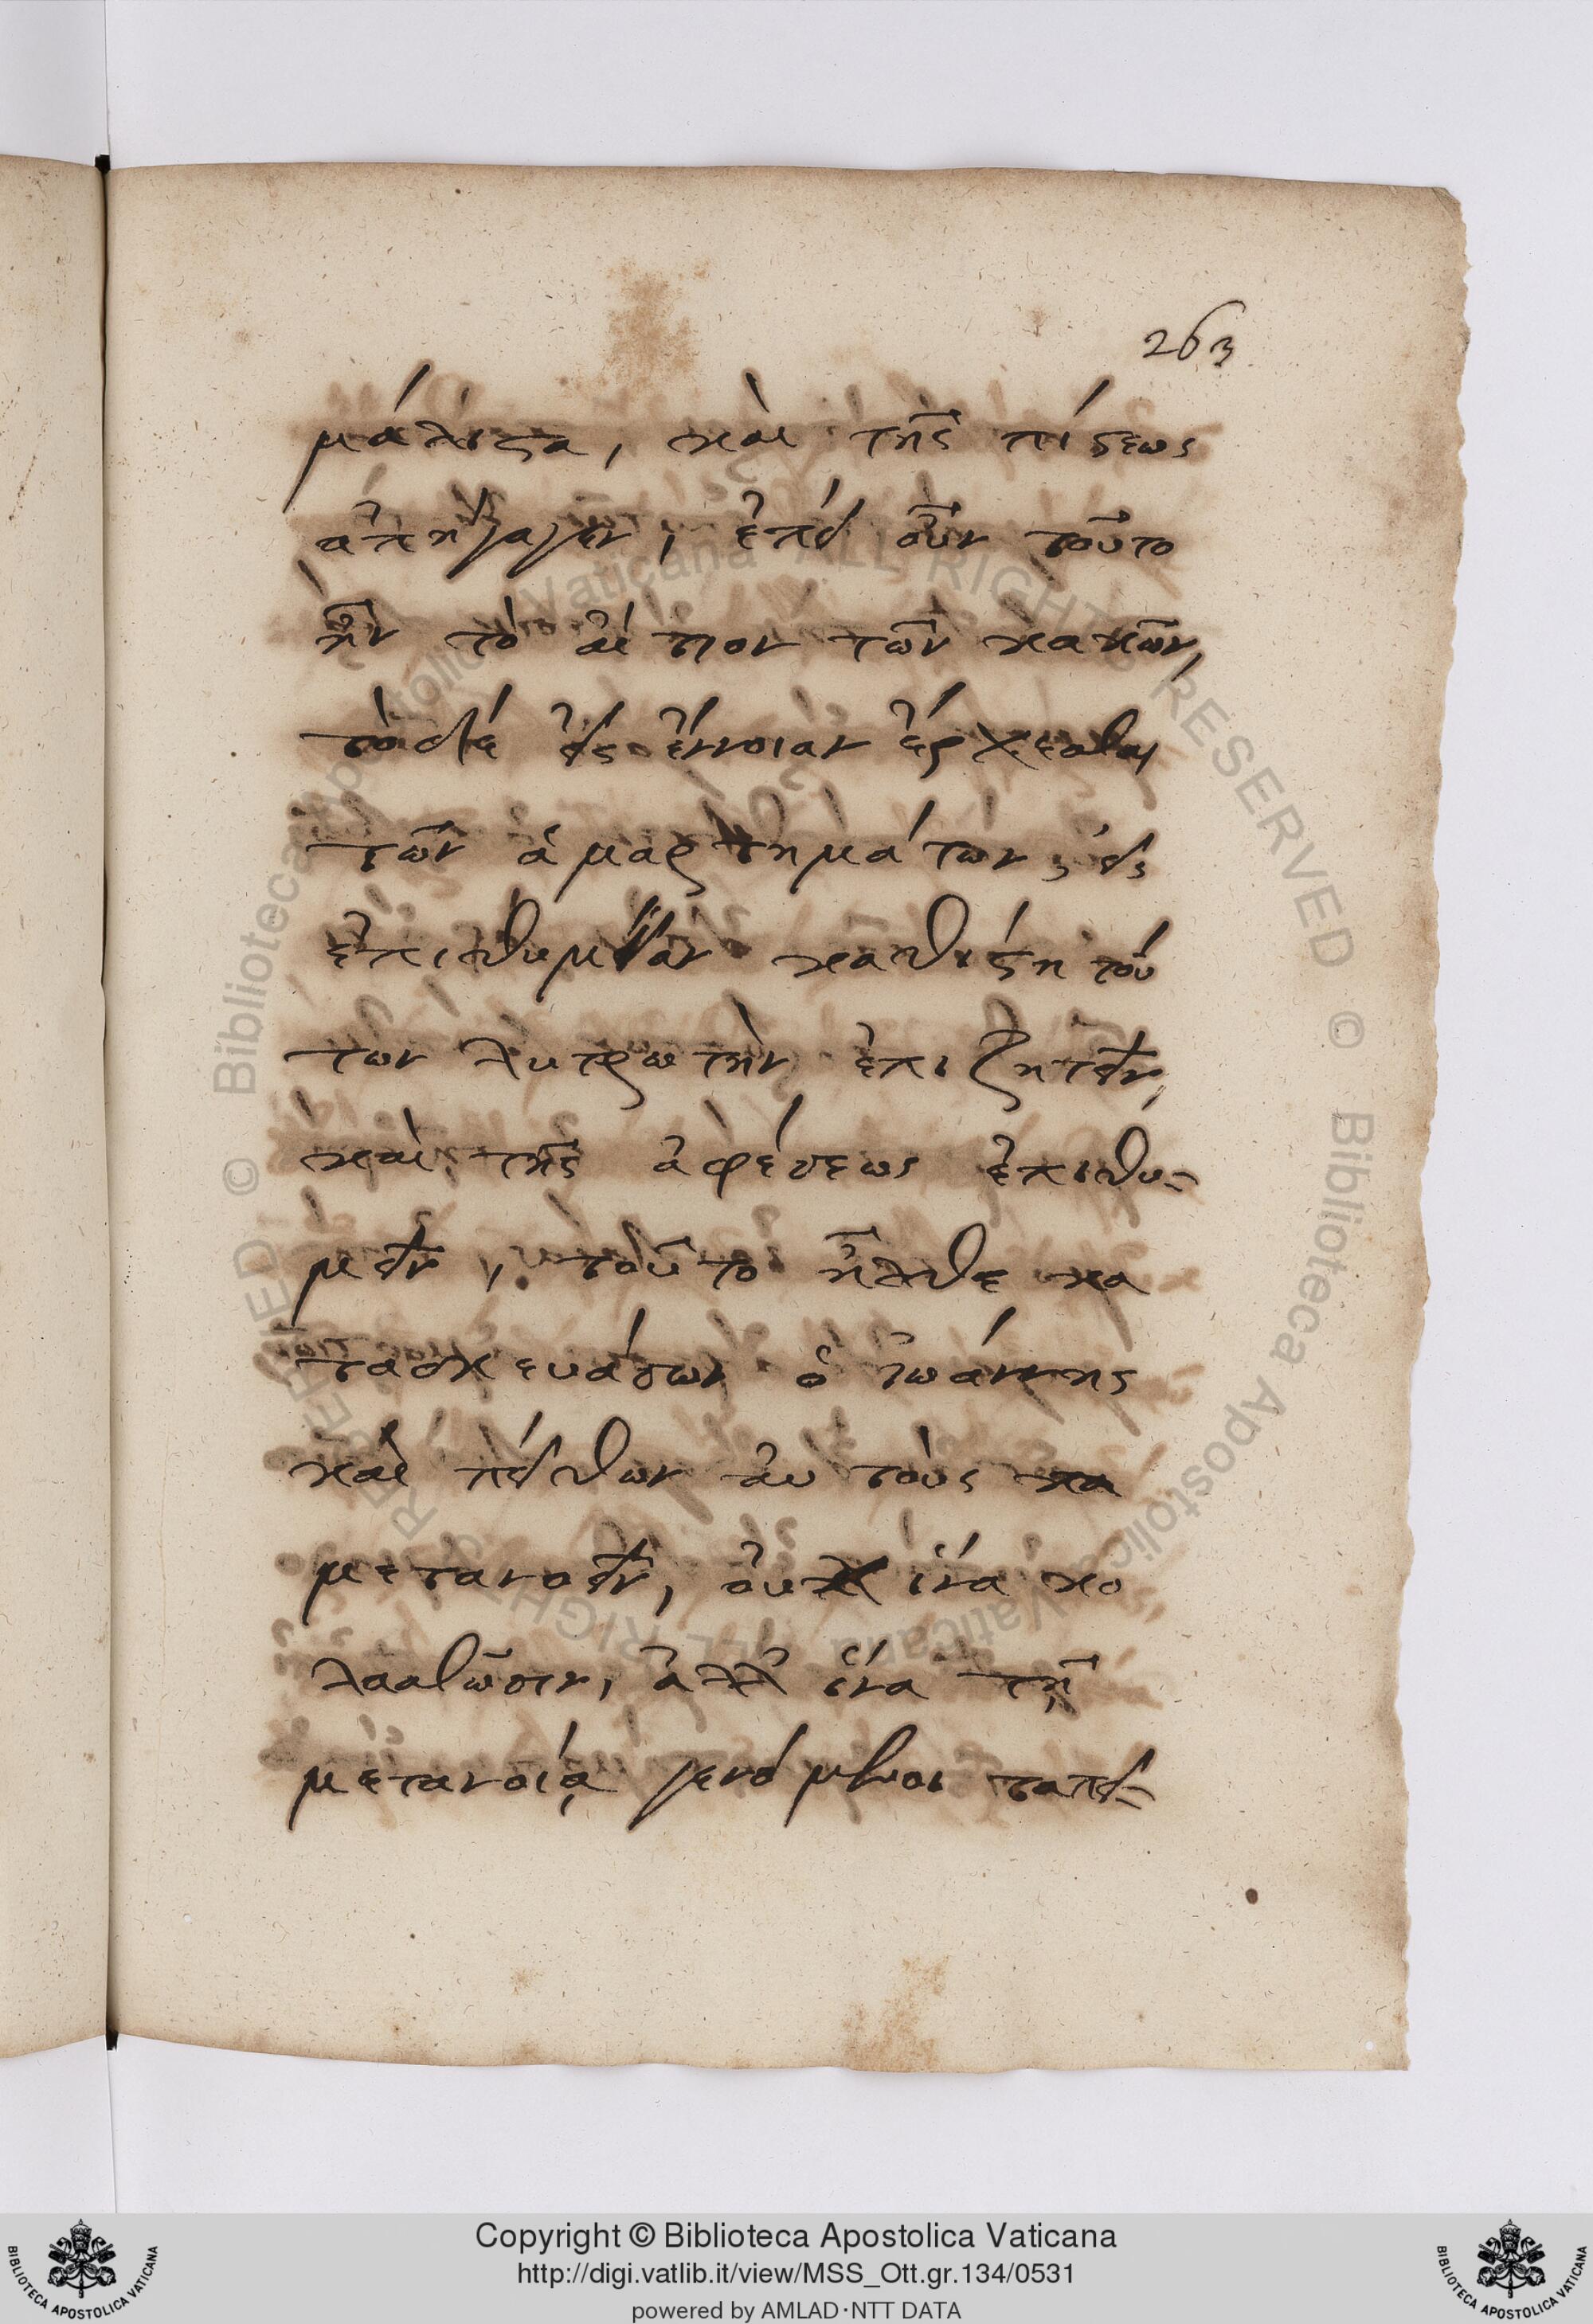 263
μάλιστα, καὶ τῆς πίστεως
ἀπήγαγεν, ἐπεὶ οὖν τοῦτο
ἦν τὸ αἴτιον τῶν κακῶν,
τὸ δὲ εἰς ἔννοιαν ἔρχεσθαι
τῶν ἁμαρτημάτων, εἰς
ἐπιθυμίαν καθίστη τοῦ
τὸν λυτρωτὴν ἐπιζητεῖν,
καὶ τῆς ἀφέσεως ἐπιθυ-
μεῖν, τοῦτο ἦλθε κα
τασκευάσων ὁ ἰωάννης
καὶ πείθων αὐτοὺς
μετανοεῖν, οὐχ ἵνα κο
λασθῶσιν, ἀλλ' ἵνα τῇ
μετανοίᾳ γενόμενοι ταπει-
Copyright © Biblioteca Apostolica Vaticana
http://digi.vatlib.it/view/MSS_Ott.gr.134/0531
powered by AMLAD·NTT DATA
BIBLIOTECA APOSTOLICA VATICANA
BIBLIOTECA APOSTOLICA VATICANA
© Biblioteca Apostolica Vaticana ALL RIGHTS RESERVED © Biblioteca Apostolica Vaticana ALL RIGHTS RESERVED